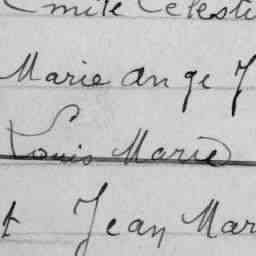 Emile Célesti
Marie Ange J
Louis Marie
t Jean Mar